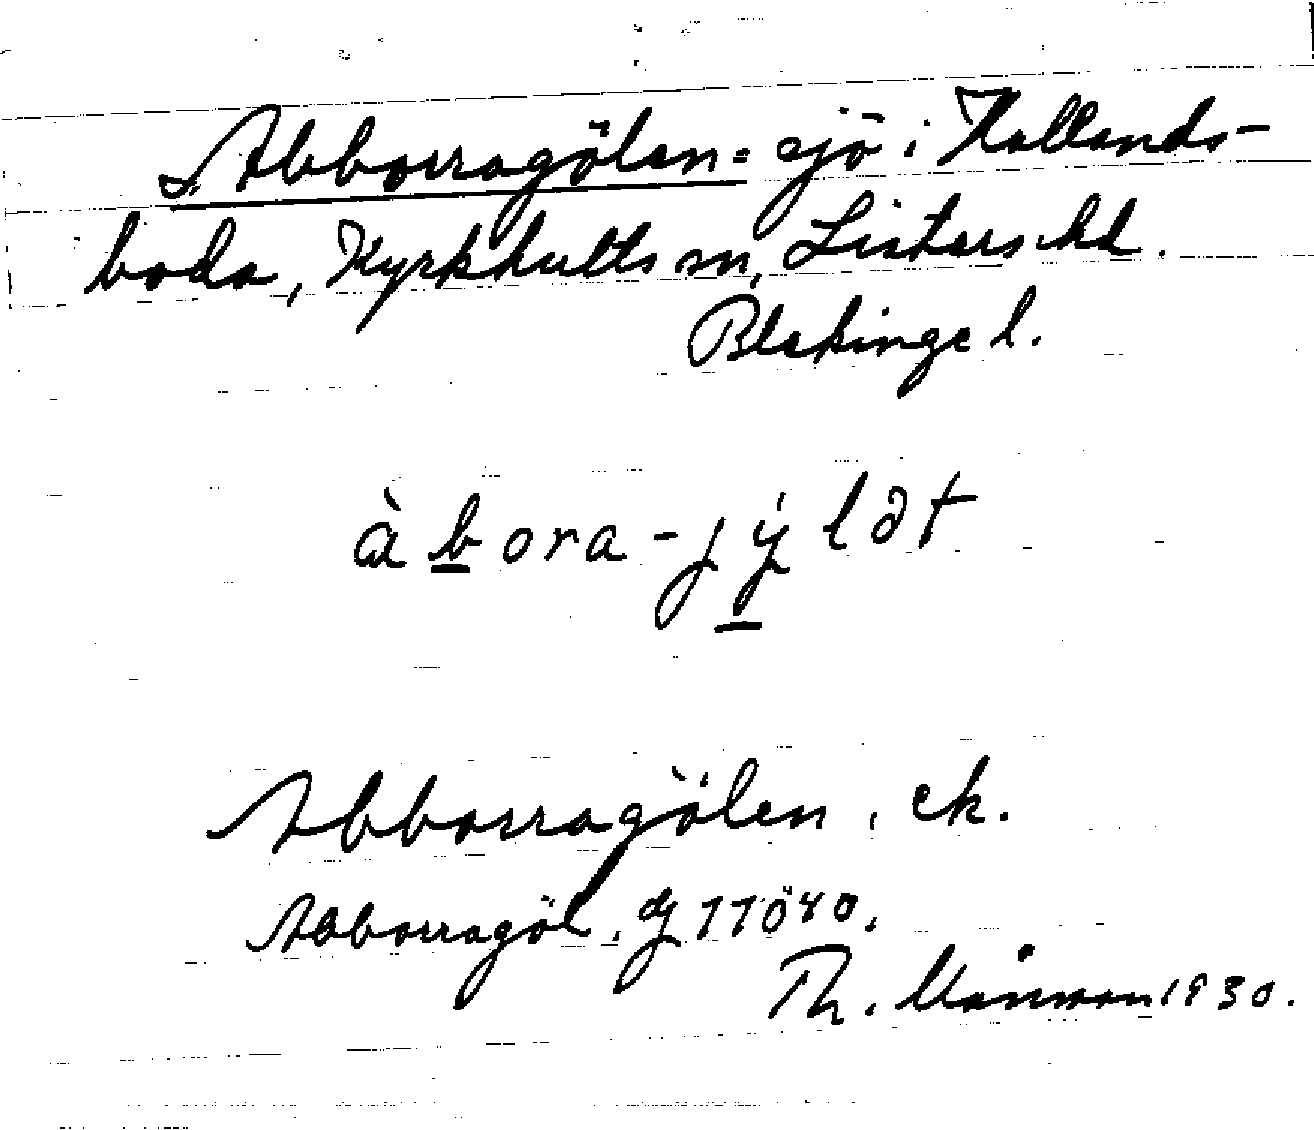 Abborragölen = sjö i Hallands-
boda, Kyrkhults sn, Listers hd.
Blekinge l.
àbora-jýlət
Abborragölen, ek.
Abborragöl, dj 11040.
Th. Månsson 1930.